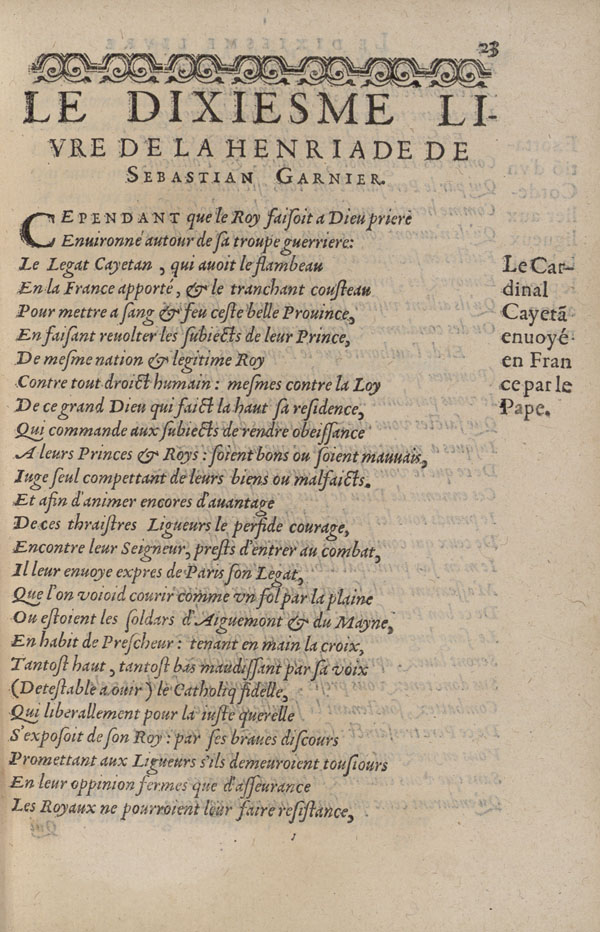 23
LE DIXIESME LI-
VRE DE LA HENRIADE DE
SEBASTIAN GARNIER.
CEPENDANT que le Roy faiſoit a Dieu priere
Enuironné autour de ſa troupe guerriere:
Le Legat Cayetan, qui auoit le flambeau
En la France apporté, & le tranchant couſteau
Pour mettre a ſang & feu ceſte belle Prouince,
En faiſant reuolter les ſubiects de leur Prince,
De meſme nation & legitime Roy
Contre tout droict humain: meſmes contre la Loy
De ce grand Dieu qui faict la haut ſa reſidence,
Qui commande aux ſubiects de rendre obeiſſance
A leurs Princes & Roys: ſoient bons ou ſoient mauuais,
Iuge ſeul compettant de leurs biens ou malfaicts.
Et afin d'animer encores d'auantage
De ces thraiſtres Ligueurs le perfide courage,
Encontre leur Seigneur, preſts d'entrer au combat,
Il leur enuoye expres de Paris ſon Legat,
Que l'on voioid courir comme vn fol par la plaine
Ou eſtoient les ſoldars d'Aiguemont & du Mayne,
En habit de Preſcheur: tenant en main la croix,
Tantoſt haut, tantoſt bas maudiſſant par ſa voix
(Deteſtable a ouir) le Catholiq fidelle,
Qui liberallement pour la iuſte querelle
S'expoſoit de ſon Roy: par ſes braues diſcours
Promettant aux Ligueurs s'ils demeuroient touſiours
En leur oppinion fermes que d'aſſeurance
Les Royaux ne pourroient leur faire reſiſtance,
Le Car-
dinal
Cayetã
enuoyé
en Fran
ce par le
Pape.